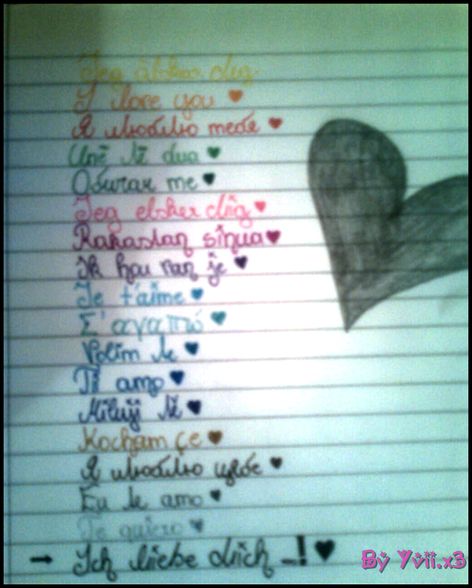 Jag älskar dig
I love you ♥
Я люблю тебе ♥
Unë të dua ♥
Обичам те ♥
Jeg elsker dig ♥
Rakastan sinua ♥
ik hou van je ♥
Je t'aime ♥
Σ'αγαπώ ♥
Volim te ♥
Ti amo ♥
Miluji tě ♥
Kocham çe ♥
Я люблю цябе ♥
Eu te amo ♥
Te quiero ♥
→ Ich liebe dich ...! ♥
By Yvii.x3